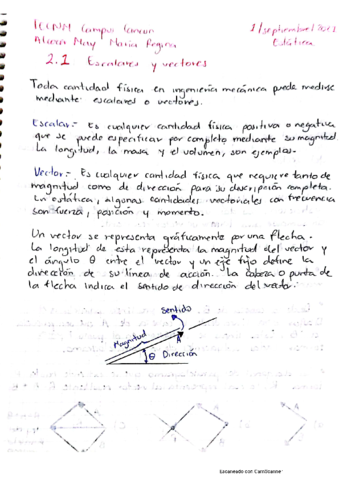 TECNM Campus Cancún
1/septiembre/2021
Alcocer May Maria Regina
Estática
2.1 Escalares y vectores
Toda cantidad física en ingeniería mecánica puede medirse
mediante escalares o vectores.
Escalar.- Es cualquier cantidad física positiva o negativa
que se puede especificar por completo mediante su magnitud
La longitud, la masa y el volumen, son ejemplos.
Vector.- Es cualquier cantidad física que requiere tanto de
magnitud como de dirección para su descripción completa.
En estática, algunas cantidades vectoriales con frecuencia
son fuerza, posición y momento.
Un vector se representa gráficamente por una flecha.
La longitud de esta representa la magnitud del vector y
el ángulo θ entre el vector y un eje fijo define la
dirección de su línea de acción. La cabeza o punta de
la flecha indica el sentido de dirección del vector.
Sentido
Magnitud
A
θ Dirección
Escaneado con CamScanner